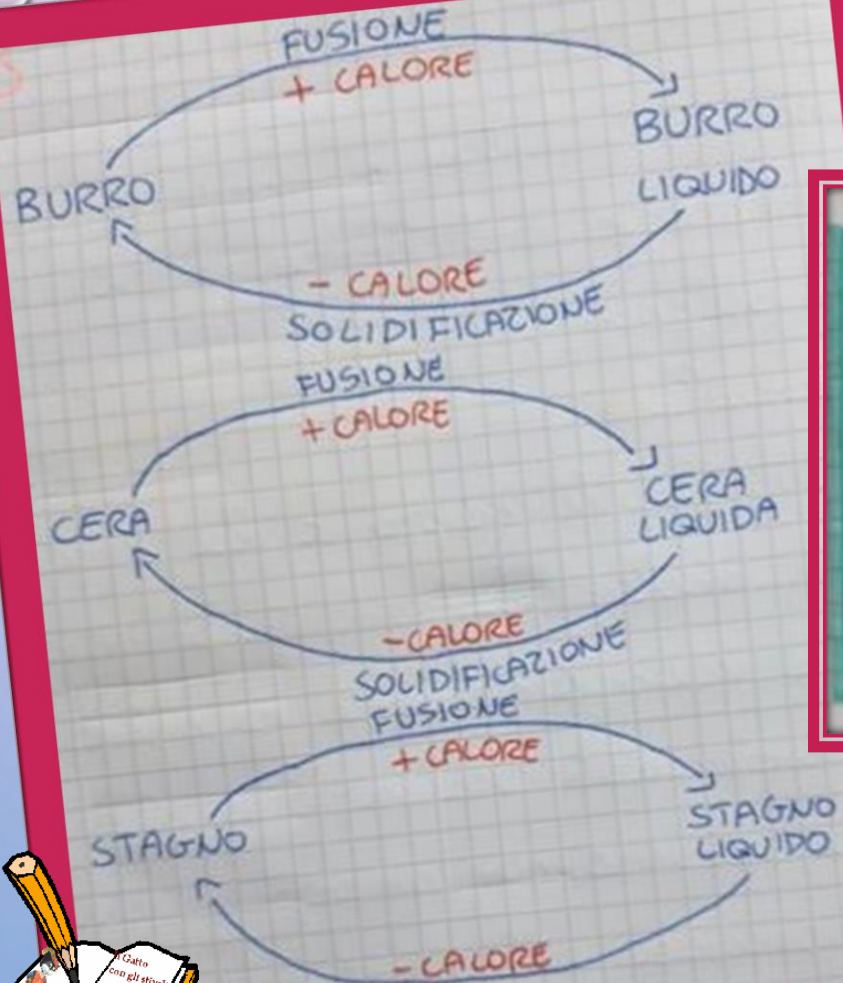 FUSIONE
+ CALORE
BURRO
BURRO
LIQUIDO
- CALORE
SOLIDIFICAZIONE
FUSIONE
+ CALORE
CERA
CERA
LIQUIDA
-CALORE
SOLIDIFICAZIONE
FUSIONE
+ CALORE
STAGNO
STAGNO
LIQUIDO
- CALORE
Il Gatto
con gli